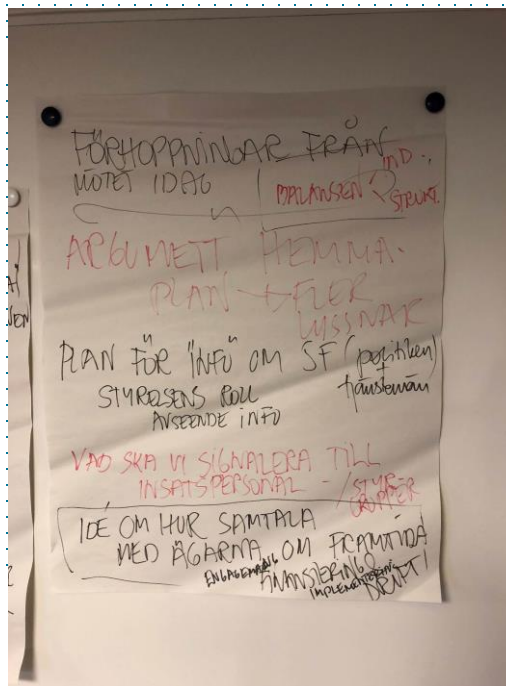 FÖRHOPPNINGAR FRÅN
MÖTET IDAG
BALANSEN
IND.
STRUKT.
ARGUMETT HEMMA-
PLAN → FLER
LYSSNAR
PLAN FÖR "INFO" OM SF (politiken)
+
tjänstemän
STYRELSENS ROLL
AVSEENDE INFO
VAD SKA VI SIGNALERA TILL
INSATSPERSONAL - / STYR-
GRUPPER
IDÉ OM HUR SAMTALA
MED ÄGARNA OM FRAMTIDA
ENGAGEMANG
FINANSIERING &
IMPLEMENTERING
DRIFT!